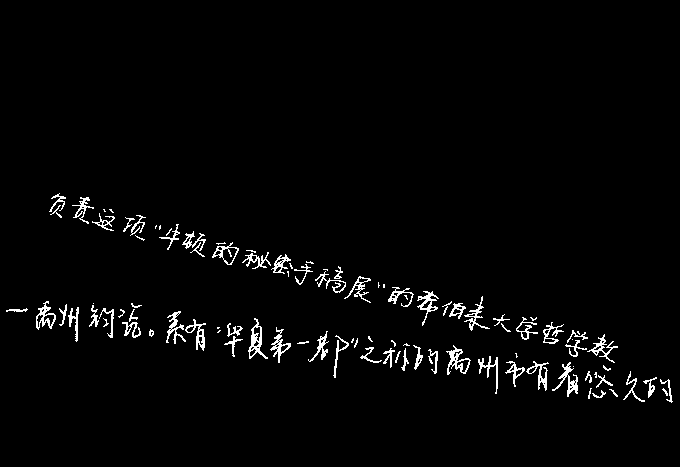 负责这项“牛顿的秘密手稿展”的希伯来大学哲学教
一禹州钧瓷。素有“华夏第一都”之称的禹州市有着悠久的